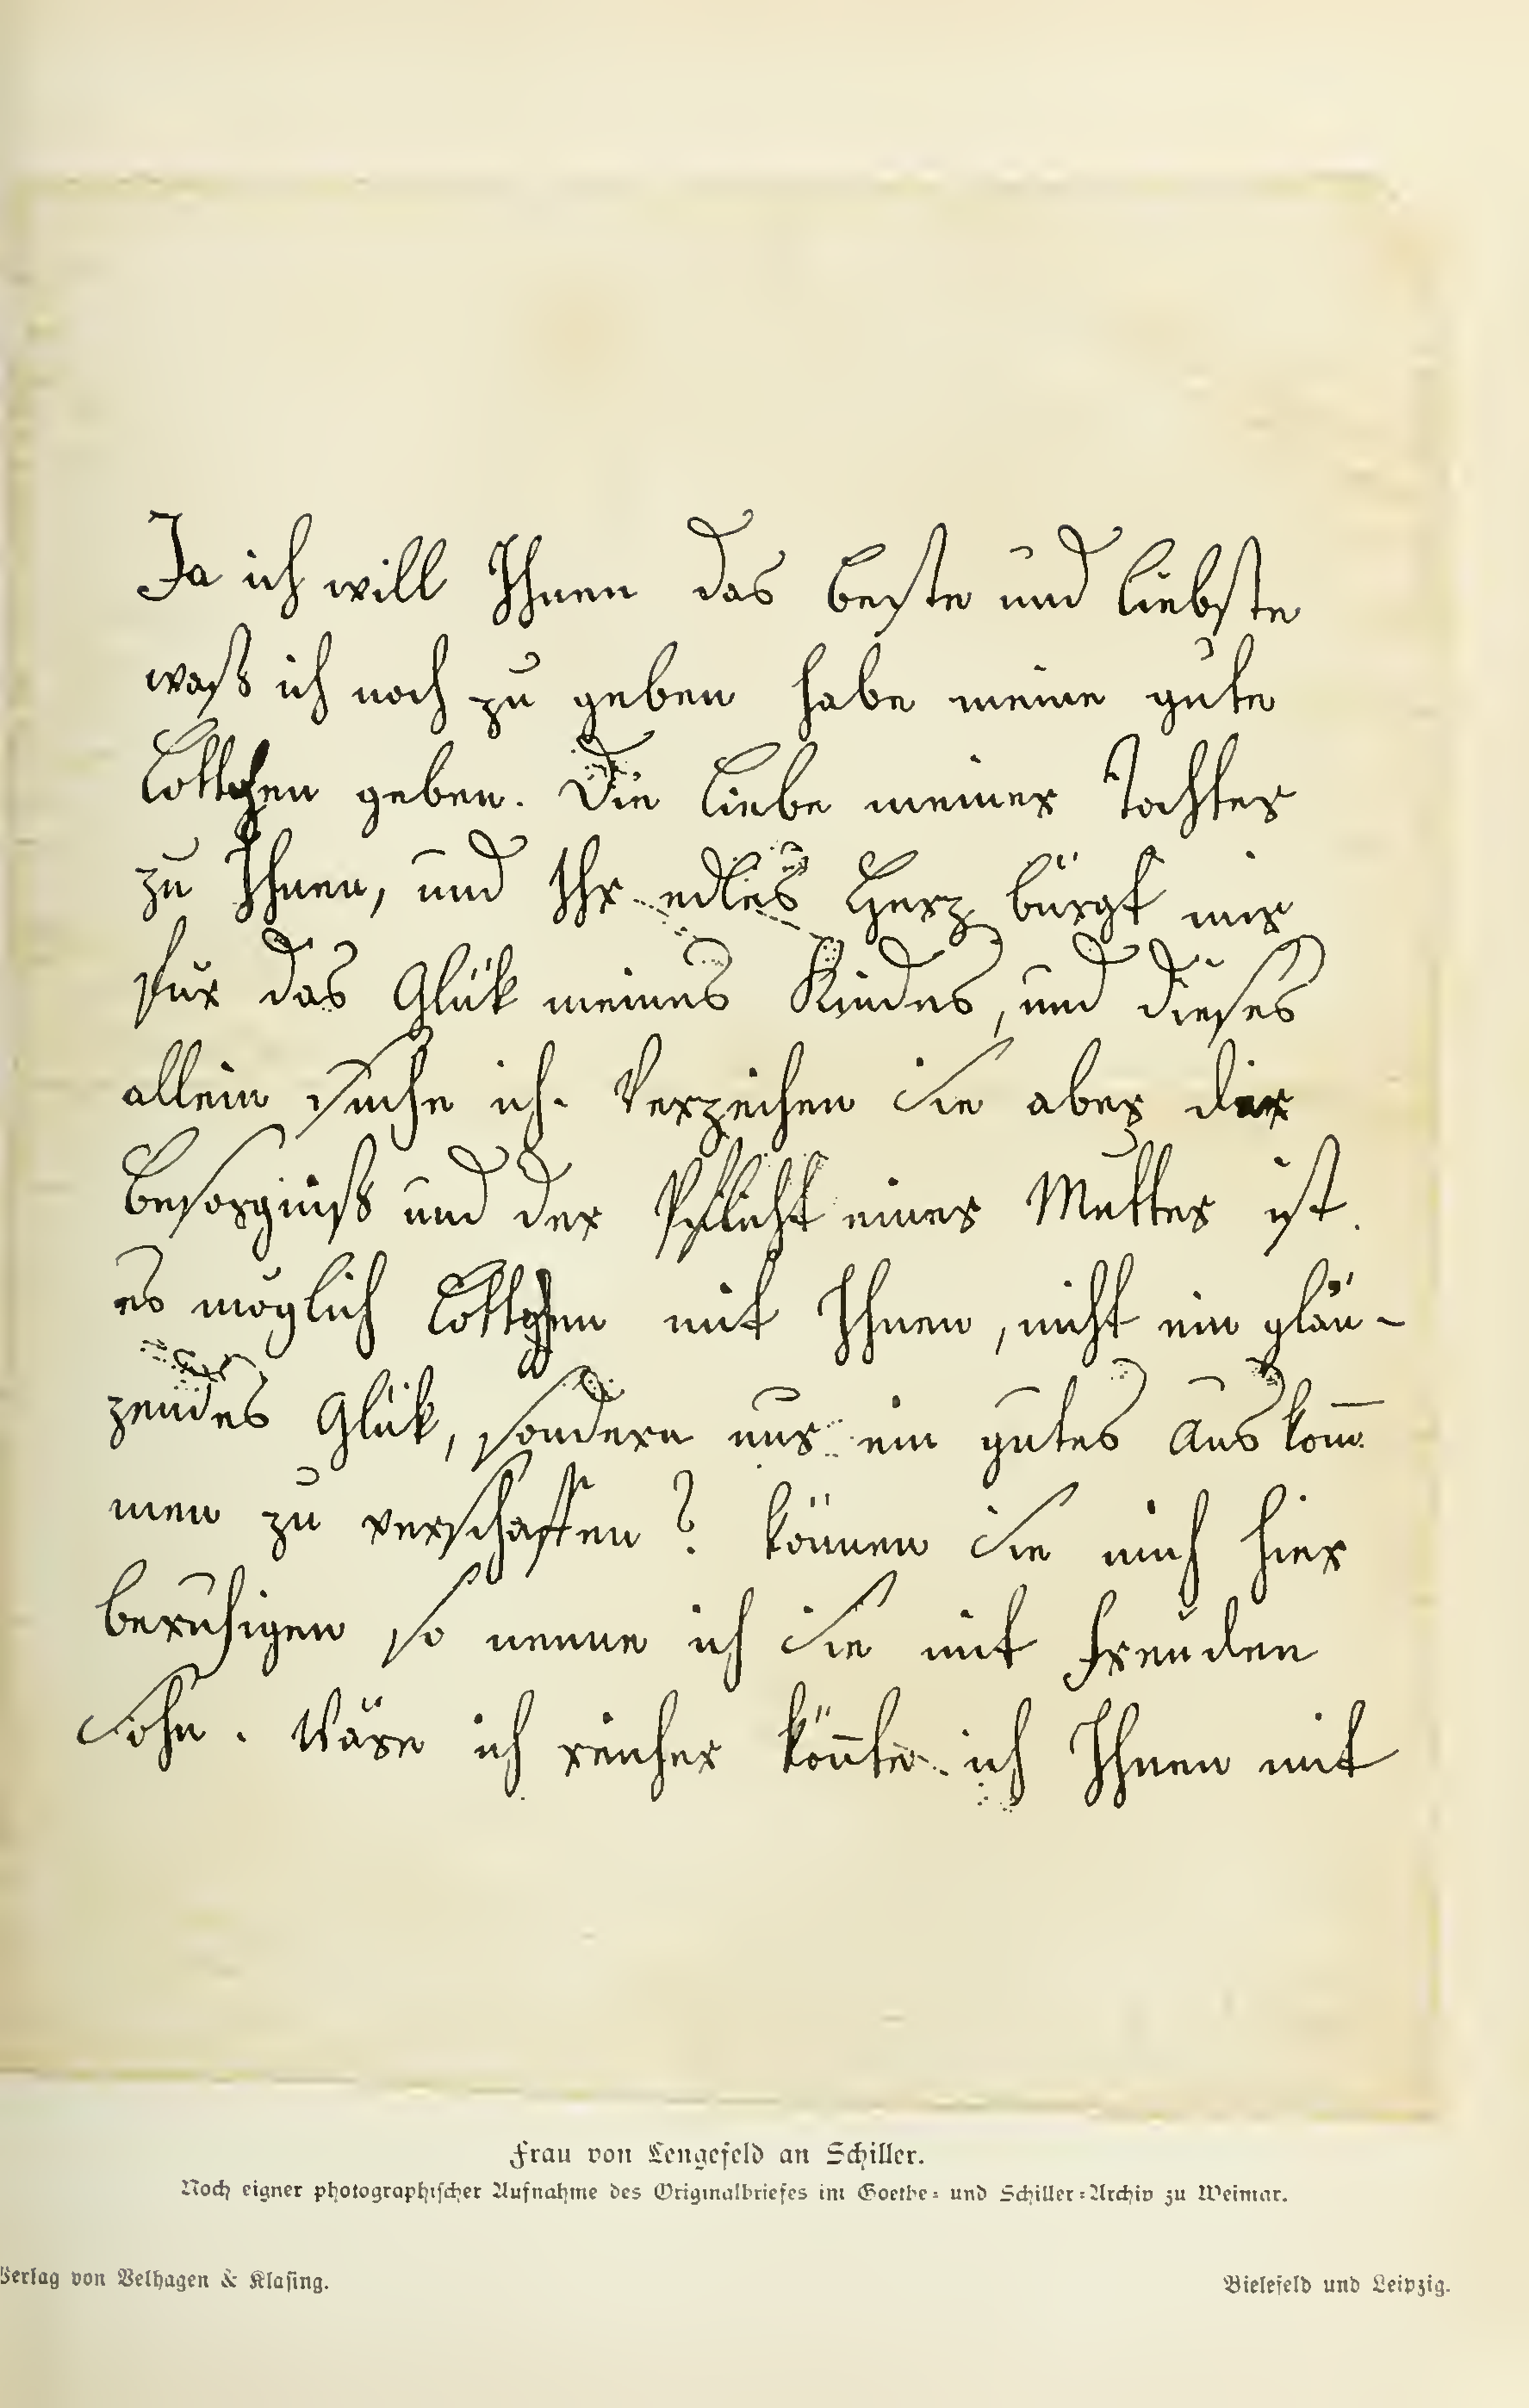 Ja ich will Ihnen das beste und liebste
waß ich noch zu geben habe meine gute
Lottchen geben. Die Liebe meiner Tochter
zu Ihnen, und Ihr edles Herz bürgt mir
für das Glük meines Kindes, und dieses
allein suche ich. Verzeihen Sie aber der
Besorgniß und der Pflicht einer Mutter ist
es möglich Lottchen mit Ihnen, nicht ein glän-
zendes Glük, sondern nur ein gutes auskom̅
men zu verschaffen? können Sie mich hier
beruhigen so nenne ich Sie mit freuden
Sohn. Wäre ich reicher kön̅te ich Ihnen mit
Frau von Lengefeld an Schiller.
Noch eigner photographischer Aufnahme des Originalbriefes im Goethe- und Schiller-Archiv zu Weimar.
Verlag von Velhagen & Klasing.
Bielefeld und Leipzig.